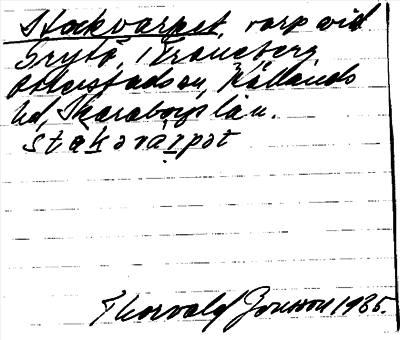 Stockvarpet, varp vid
Brytö, i Traneberg
Otterstads sn, Kållands
hd, Skaraborgs län.
stakəvárpət
Thorvald Jonsson 1935.